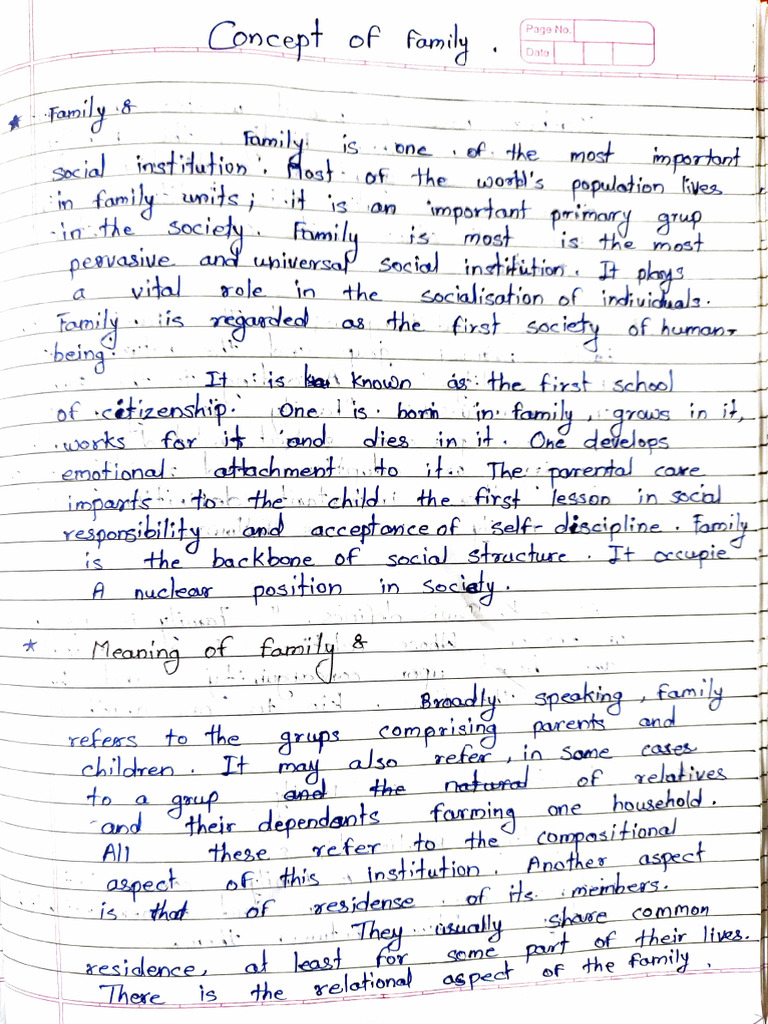 Concept of Family.
Page No.
Date
* Family :
Family is one of the most important
social institution. Most of the world's population lives
in family units; it is an important primary grup
in the society. Family is most is the most
pervasive and universal social institution. It plays
a vital role in the socialisation of individuals.
Family is regarded as the first society of human-
being.
It is known as the first school
of citizenship. One is born in family, grows in it,
works for it and dies in it. One develops
emotional attachment to it. The parental care
imparts to the child the first lesson in social
responsibility and acceptance of self-discipline. Family
is the backbone of social structure. It occupie
A nuclear position in society.
* Meaning of family :
Broadly speaking, family
refers to the grups comprising parents and
children. It may also refer, in some cases
to a grup and the natural of relatives
and their dependants farming one household.
All these refer to the compositional
aspect of this institution. Another aspect
is that of residense of its members.
They usually share common
residence, at least for some part of their lives.
There is the relational aspect of the family.